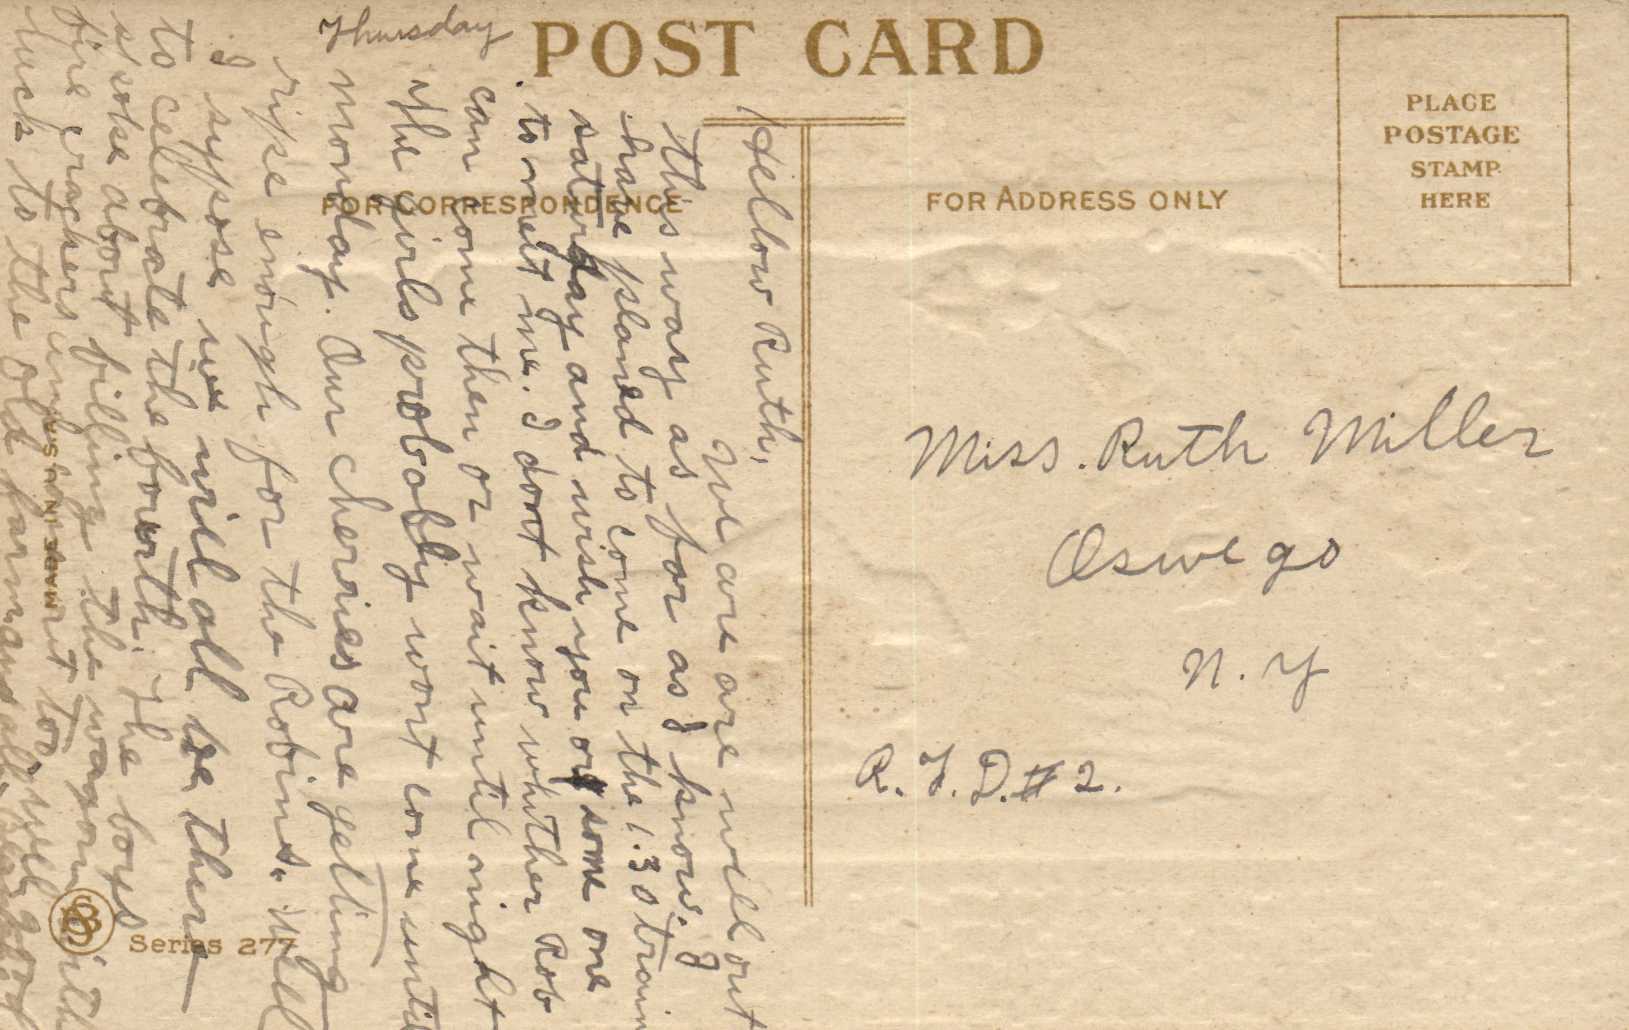 POST CARD
PLACE
POSTAGE
STAMP
HERE
FOR CORRESPONDENCE
FOR ADDRESS ONLY
Thursday
Hellow Ruth,
We are are well out
this way as for as I know. I
have planed to come on the 1:30 train
saturday and wish you or some one
to meet me. I dont know whither Rob
can come then or wait until night
The girls probably wont come until
monday. Our cherries are getting
ripe enough for the Robins. Well
I sypose we will all be there
to celebrate the fourth. The boys
spoke about filling the wagon with
fire crackers
luck to the old farm
Miss. Ruth Miller
Oswego
N. Y
R. F. D. # 2.
MADE IN U.S.
Series 277